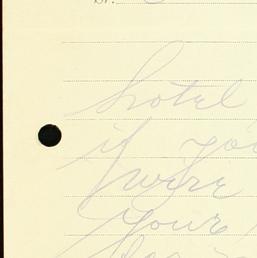 hotel
if you
were
your